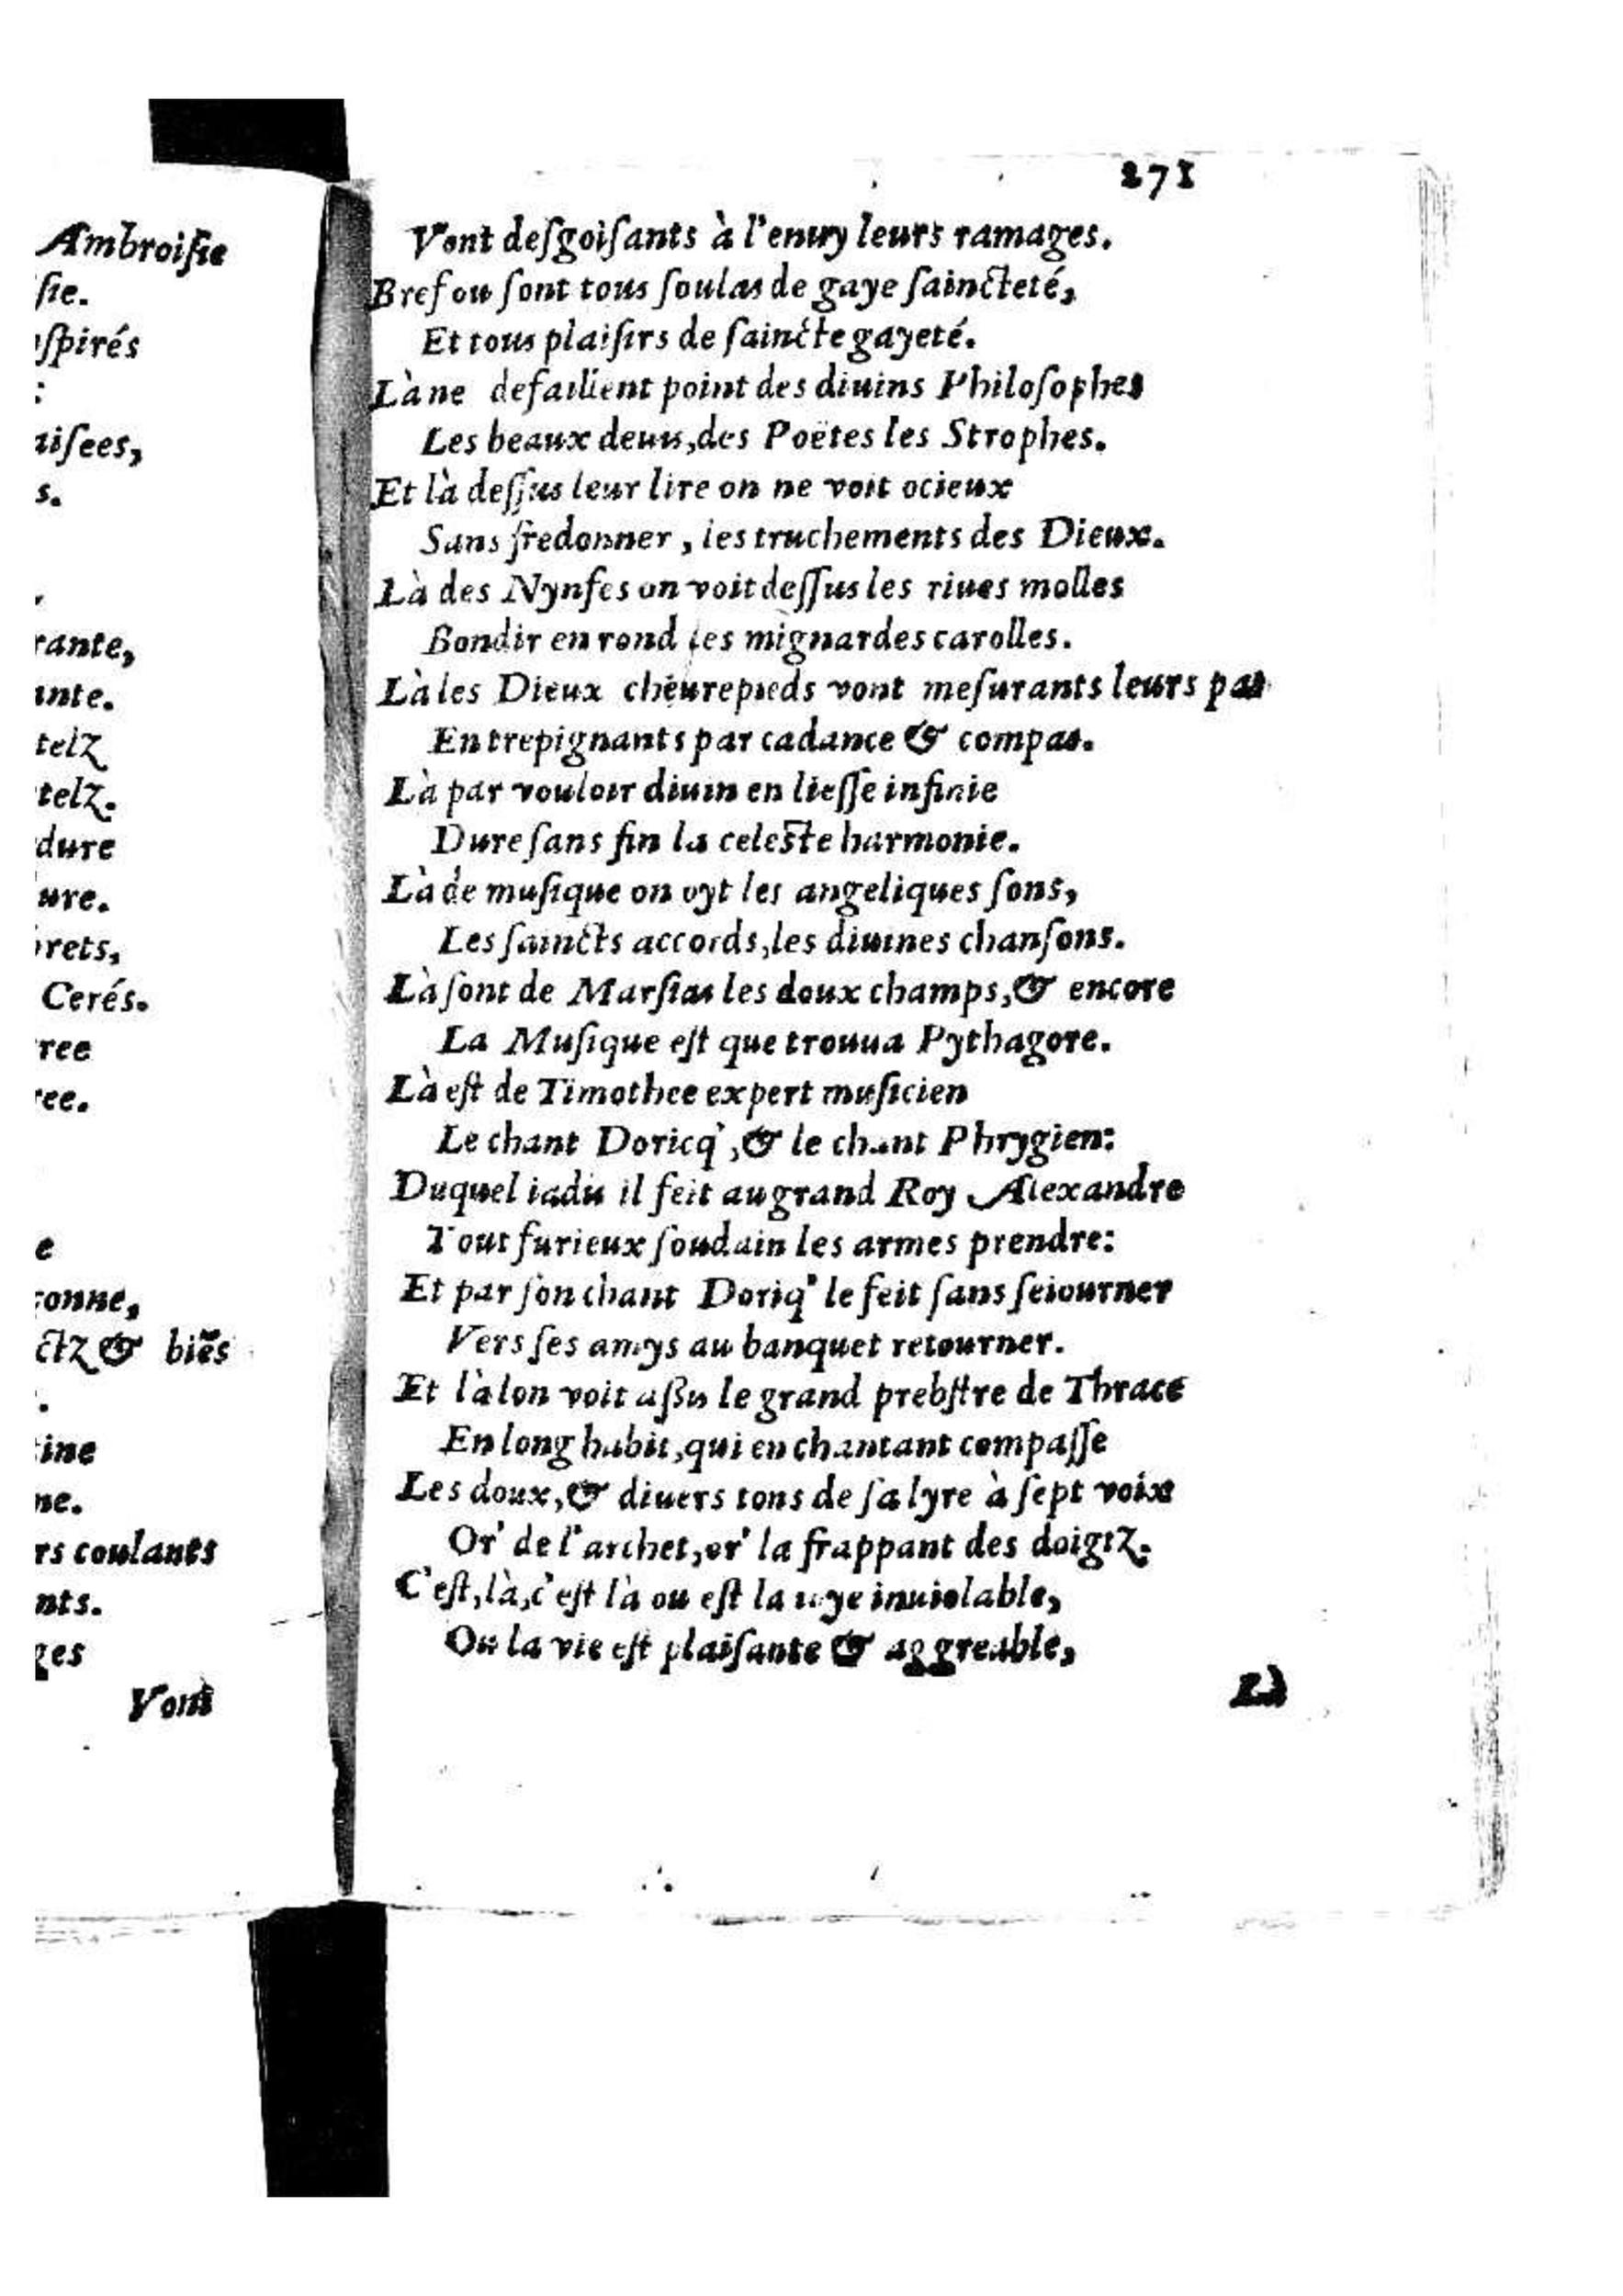 Ambroiſie
ſie.
ſpirés
:
aiſees,
s.
rante,
ante.
telz
telz.
dure
ure.
rets,
Cerés.
ree
ee.
e
onne,
ctz & biẽs
.
ine
ne.
rs coulants
nts.
ges
Vont
271
Vont deſgoiſants à l'enuy leurs ramages.
Bref ou ſont tous ſoulas de gaye ſaincteté,
Et tous plaiſirs de ſaincte gayeté.
Là ne defaillent point des diuins Philoſophes
Les beaux deuis, des Poëtes les Strophes.
Et là deſſus leur lire on ne voit ocieux
Sans fredonner, les truchements des Dieux.
Là des Nynfes on voit deſſus les riues molles
Bondir en rond les mignardes carolles.
Là les Dieux cheurepieds vont meſurants leurs pas
Entrepignants par cadance & compas.
Là par vouloir diuin en lieſſe infinie
Dure ſans fin la celeste harmonie.
Là de muſique on oyt les angeliques ſons,
Les ſaincts accords, les diuines chanſons.
Là ſont de Marſias les doux champs, & encore
La Muſique eſt que trouua Pythagore.
Là eſt de Timothee expert muſicien
Le chant Doricq', & le chant Phrygien:
Duquel iadis il feit au grand Roy Alexandre
Tout furieux ſoudain les armes prendre:
Et par ſon chant Doriq' le feit ſans ſeiourner
Vers ſes amys au banquet retourner.
Et là lon voit aßis le grand prebſtre de Thrace
En long habit, qui en chantant compaſſe
Les doux, & diuers tons de ſa lyre à ſept voix
Or' de l'archet, or' la frappant des doigtz.
C'eſt, là, c'eſt là ou eſt la ioye inuiolable,
Ou la vie eſt plaiſante & aggreable,
Là